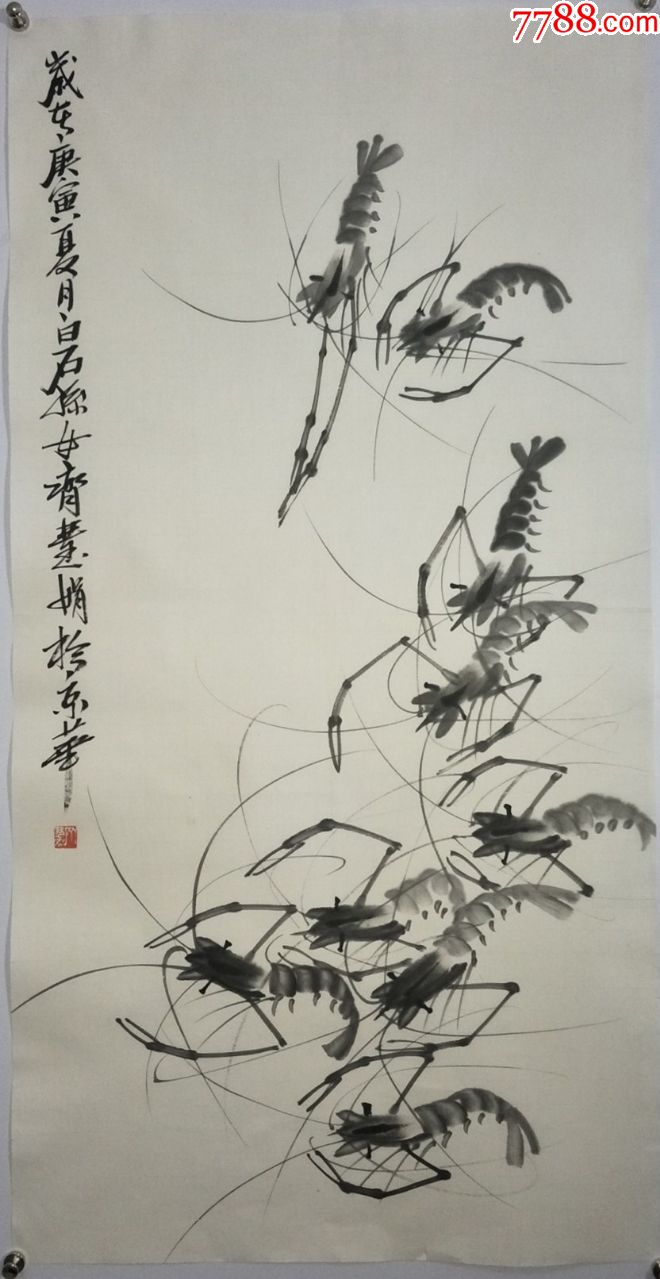 7788.com
歲在庚寅夏月白石孫女齊慧娟於京華